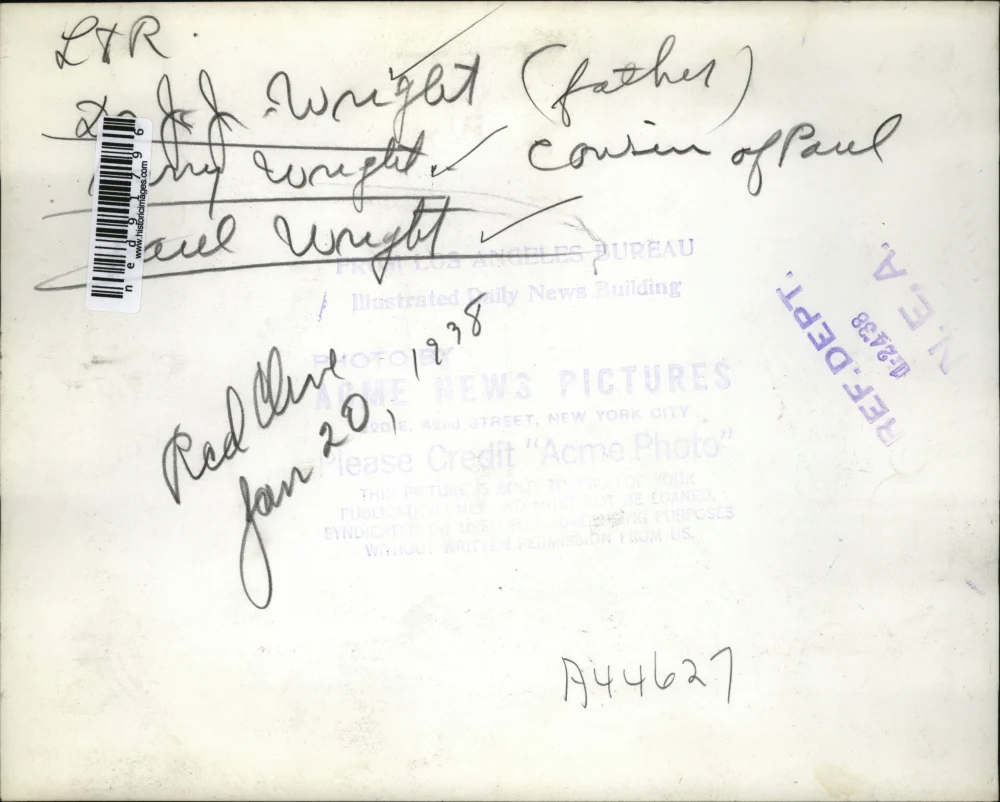 L & R.
Dr. J.J. Wright (father)
Wright cousin of Paul
Paul Wright
FROM LOS ANGELES BUREAU
Illustrated Daily News Building
PHOTO BY
ACME NEWS PICTURES
220 E. 42nd STREET, NEW YORK CITY
Please Credit "Acme Photo"
THIS PICTURE IS SOLD TO YOU FOR YOUR
PUBLICATION ONLY AND MUST NOT BE LOANED,
SYNDICATED OR USED FOR ADVERTISING PURPOSES
WITHOUT WRITTEN PERMISSION FROM US.
Red
Jan 20, 1938
REF. DEPT.
1-24-38
N.E.A.
www.historicimages.com
ned91796
A44627